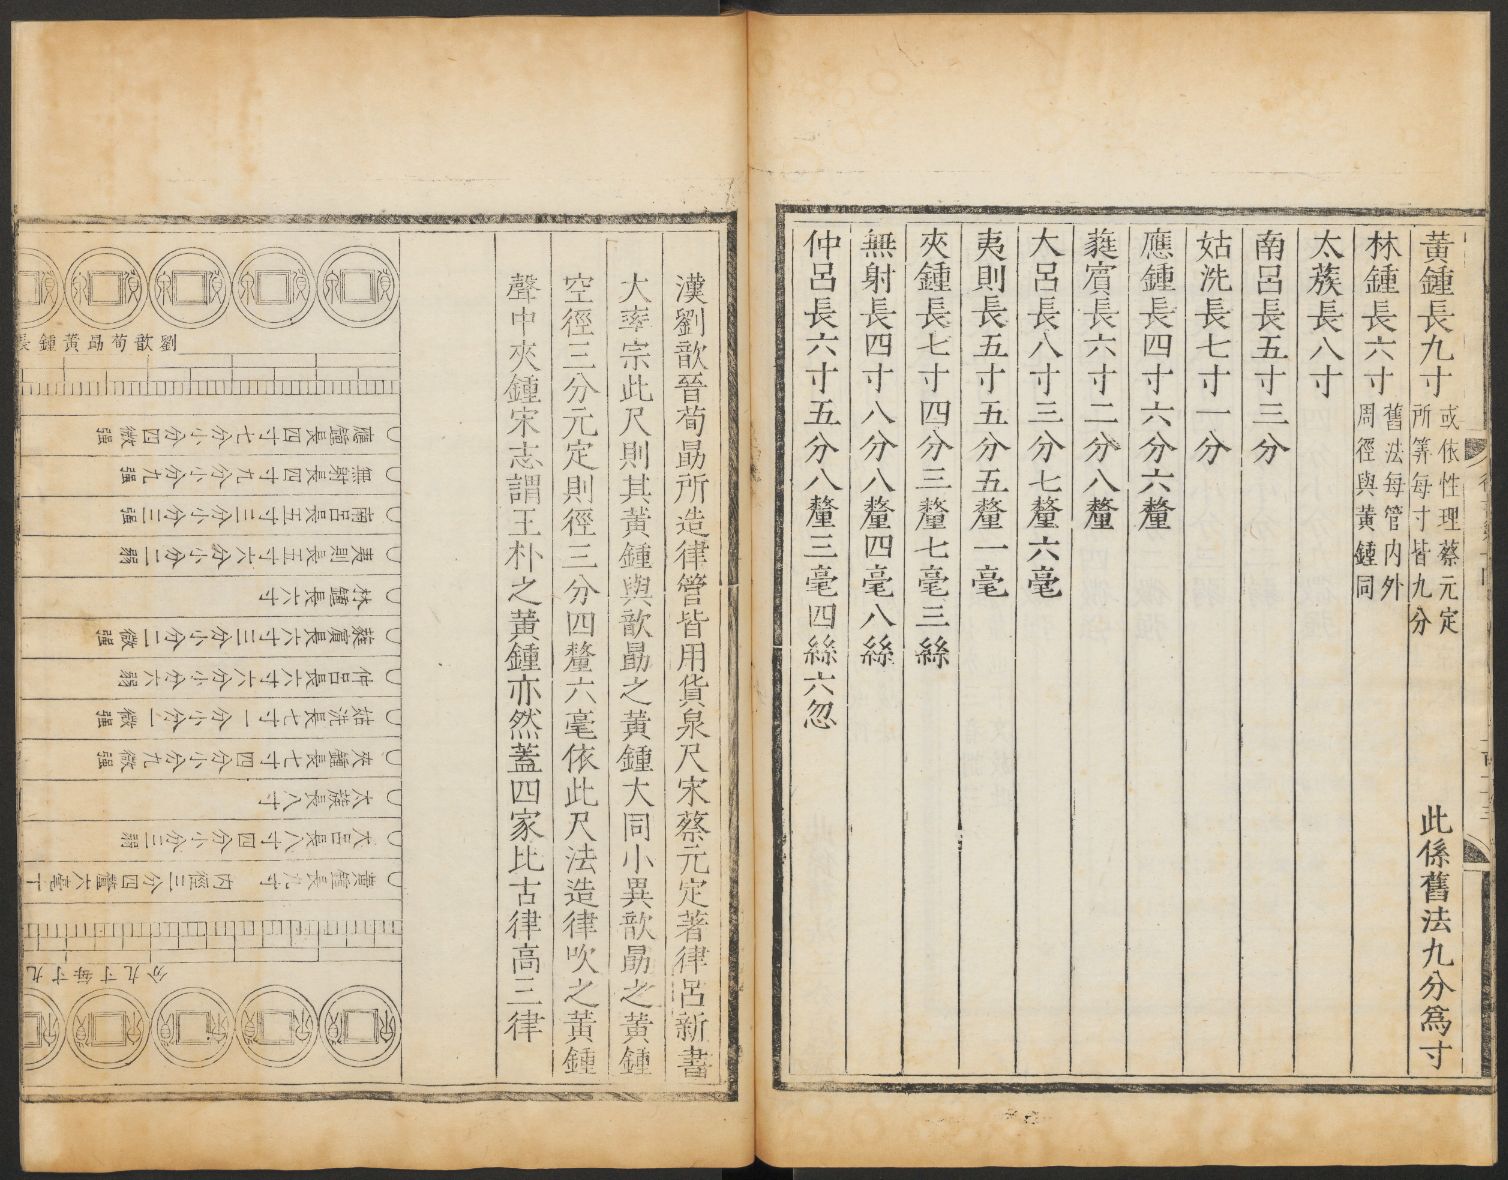 黃鍾長九寸
或依性理蔡元定
所筭每寸皆九分
此係舊法九分爲寸
林鍾長六寸
舊法每管內外
周徑與黃鍾同
太蔟長八寸
南呂長五寸三分
姑洗長七寸一分
應鍾長四寸六分六釐
蕤賓長六寸二分八釐
大呂長八寸三分七釐六毫
夷則長五寸五分五釐一毫
夾鍾長七寸四分三釐七毫三絲
無射長四寸八分八釐四毫八絲
仲呂長六寸五分八釐三毫四絲六忽
漢劉歆晉荀勗所造律管皆用貨泉尺宋蔡元定著律呂新書
大率宗此尺則其黃鍾與歆勗之黃鍾大同小異歆勗之黃鍾
空徑三分元定則徑三分四釐六毫依此尺法造律吹之黃鍾
聲中夾鍾宋志謂王朴之黃鍾亦然蓋四家比古律高三律
劉歆荀勗黃鍾長
應鍾長四寸七分小分四微强
無射長四寸九分小分九强
南呂長五寸三分小分三强
夷則長五寸六分小分二弱
林鍾長六寸
蕤賓長六寸三分小分二微强
仲呂長六寸六分小分六弱
姑洗長七寸一分小分一微强
夾鍾長七寸四分小分九微强
太蔟長八寸
大呂長八寸四分小分三弱
黃鍾長九寸 內徑三分四釐六毫
九寸每寸九分
貨泉
貨泉
貨泉
貨泉
貨泉
貨泉
貨泉
貨泉